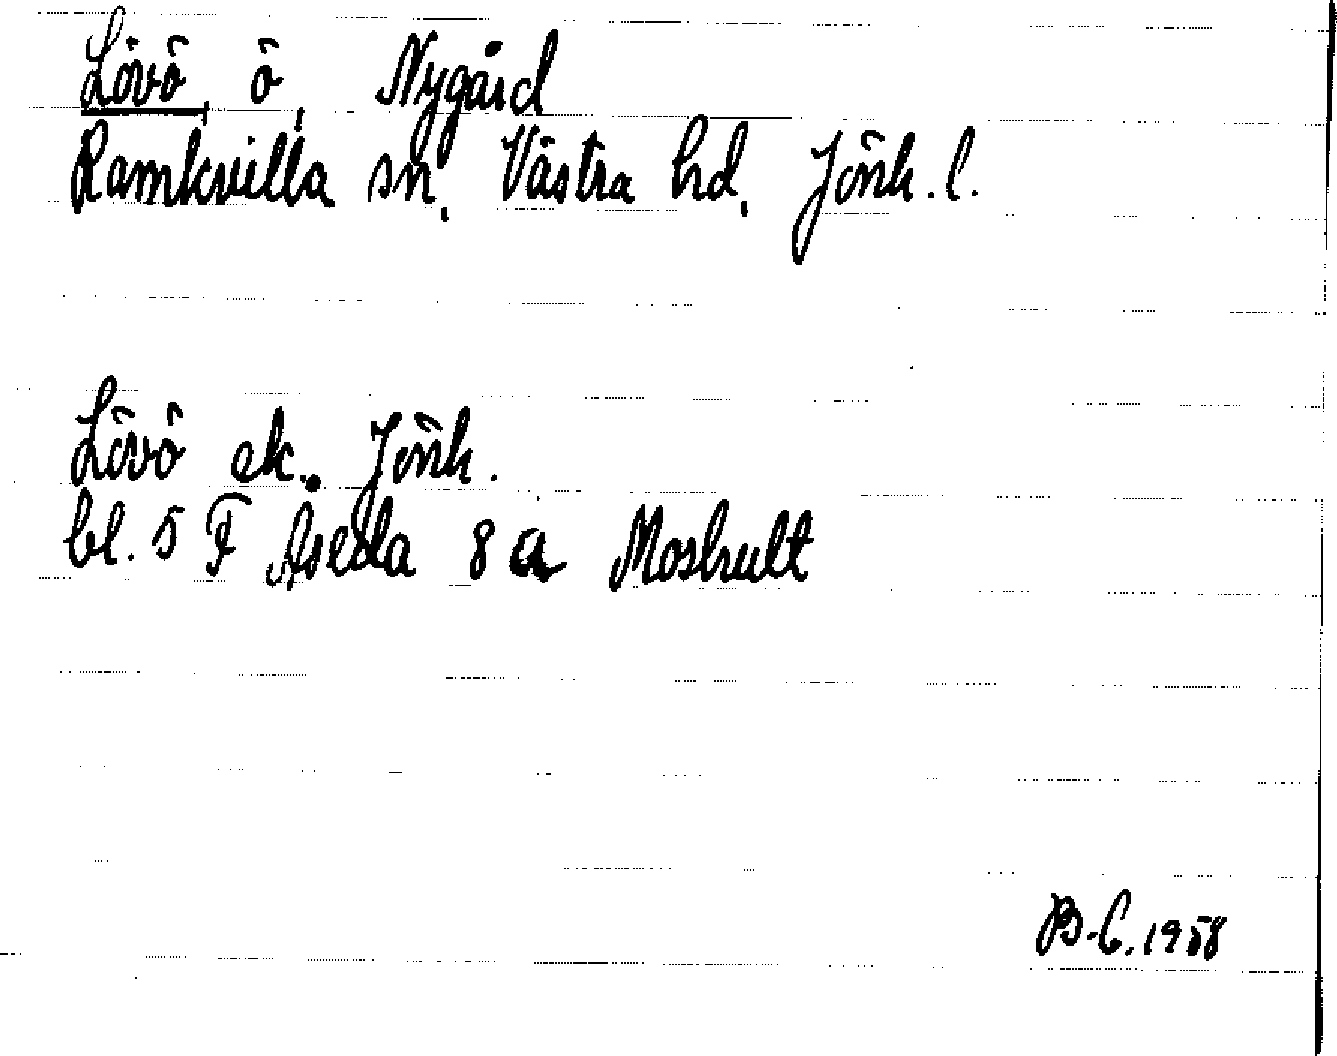 Lövö, ö, Nygård
Ramkvilla sn, Västra hd, Jönk. l.
Lövö ek. Jönk.
bl. 5 F Åseda 8 a Moshult
B-C. 1958